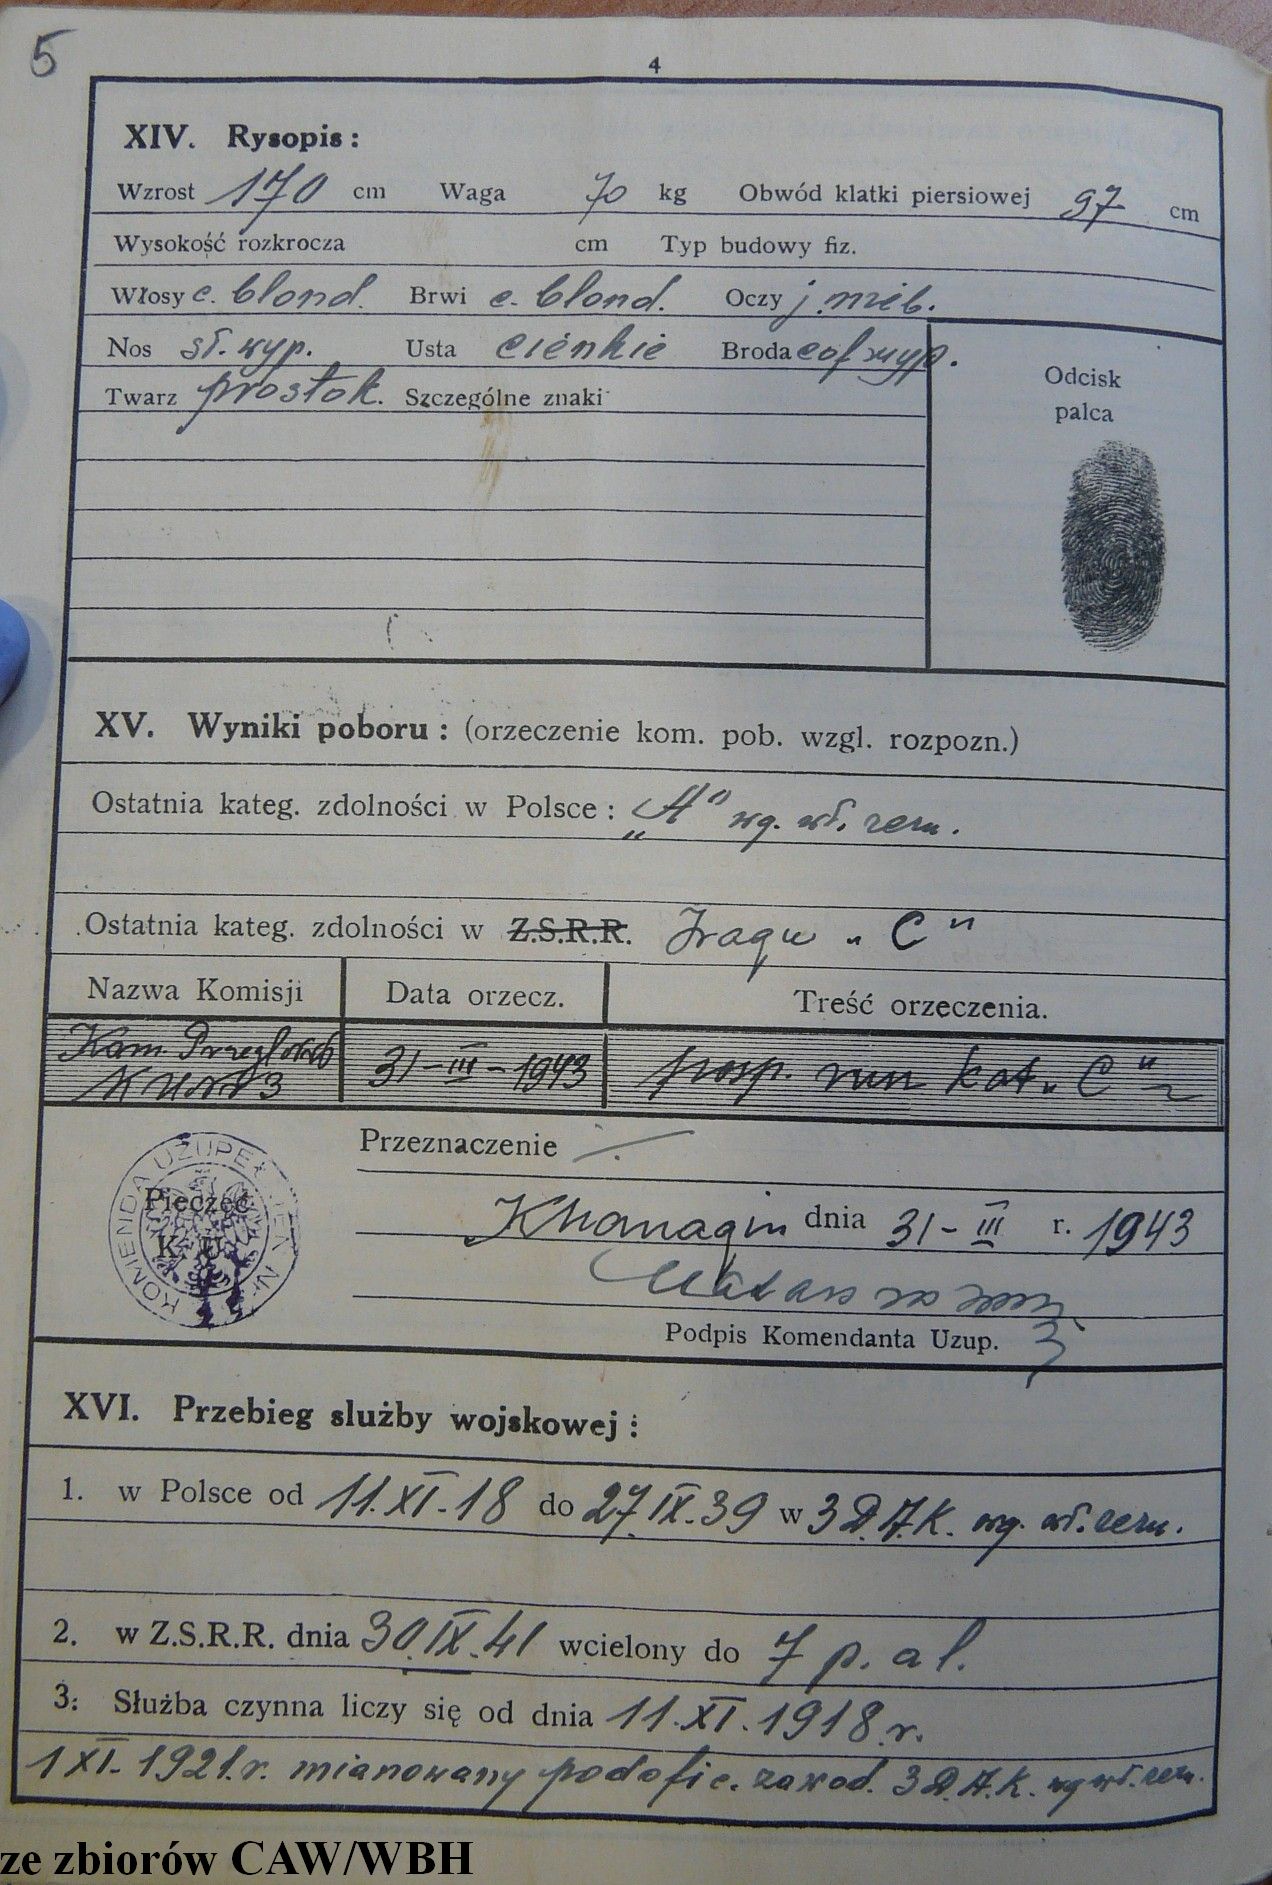 5
4
XIV. Rysopis:
Wzrost 170 cm Waga 70 kg Obwód klatki piersiowej 97 cm
Wysokość rozkrocza cm Typ budowy fiz.
Włosy c. blond. Brwi c. blond. Oczy j. nieb.
Nos sł. wyp. Usta cienkie Broda cof. wyp.
Twarz prostok. Szczególne znaki
Odcisk
palca
XV. Wyniki poboru: (orzeczenie kom. pob. wzgl. rozpozn.)
Ostatnia kateg. zdolności w Polsce: „A" wg. wł. zezn.
Ostatnia kateg. zdolności w Z.S.R.R. Iraqu „C"
Nazwa Komisji Data orzecz. Treść orzeczenia.
Kom. 31-III-1943 posp. rusz kat. „C"
3
Przeznaczenie
KOMENDA UZUPEŁNIEŃ Nr
Pieczęć
K. U.
Khanaqin dnia 31-III r. 1943
Podpis Komendanta Uzup.
XVI. Przebieg służby wojskowej:
1. w Polsce od 11.XI.18 do 27.IX.39 w 3 D.A.K. wg. wł. zezn.
2. w Z.S.R.R. dnia 30.IX.41 wcielony do 7 p. a l.
3. Służba czynna liczy się od dnia 11.XI.1918.r.
1 XI. 1921.r. mianowany podofic. zawod. 3 D.A.K. wg wł. zezn.
ze zbiorów CAW/WBH